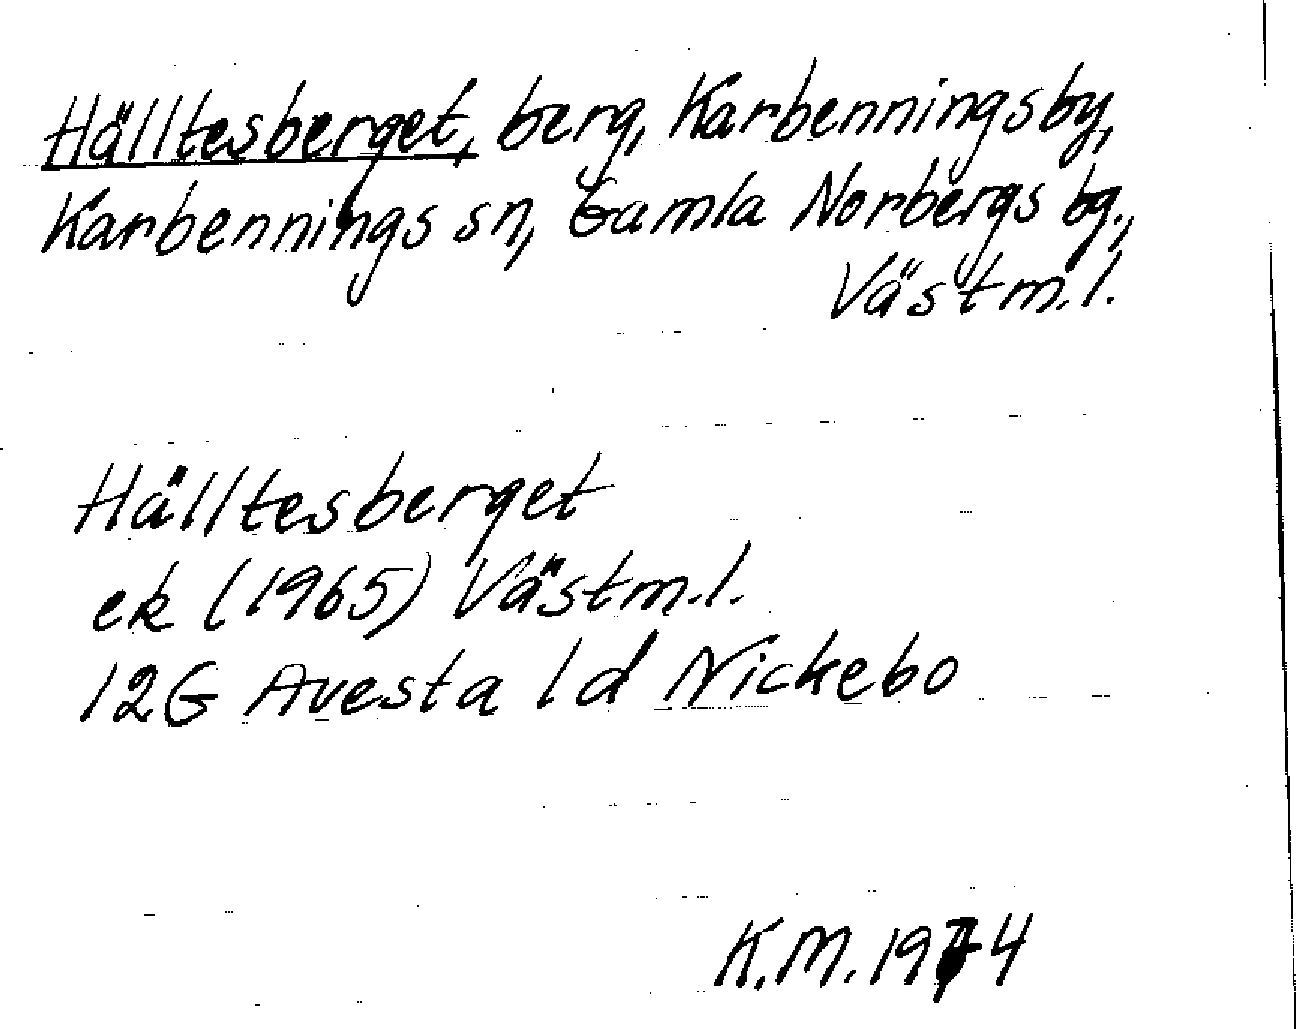 Hälltesberget, berg, Karbenningsby,
Karbennings sn, Gamla Norbergs bg.,
Västm.l.
Hälltesberget
ek (1965) Västm.l.
12G Avesta 1d Nickebo
K.M. 1974